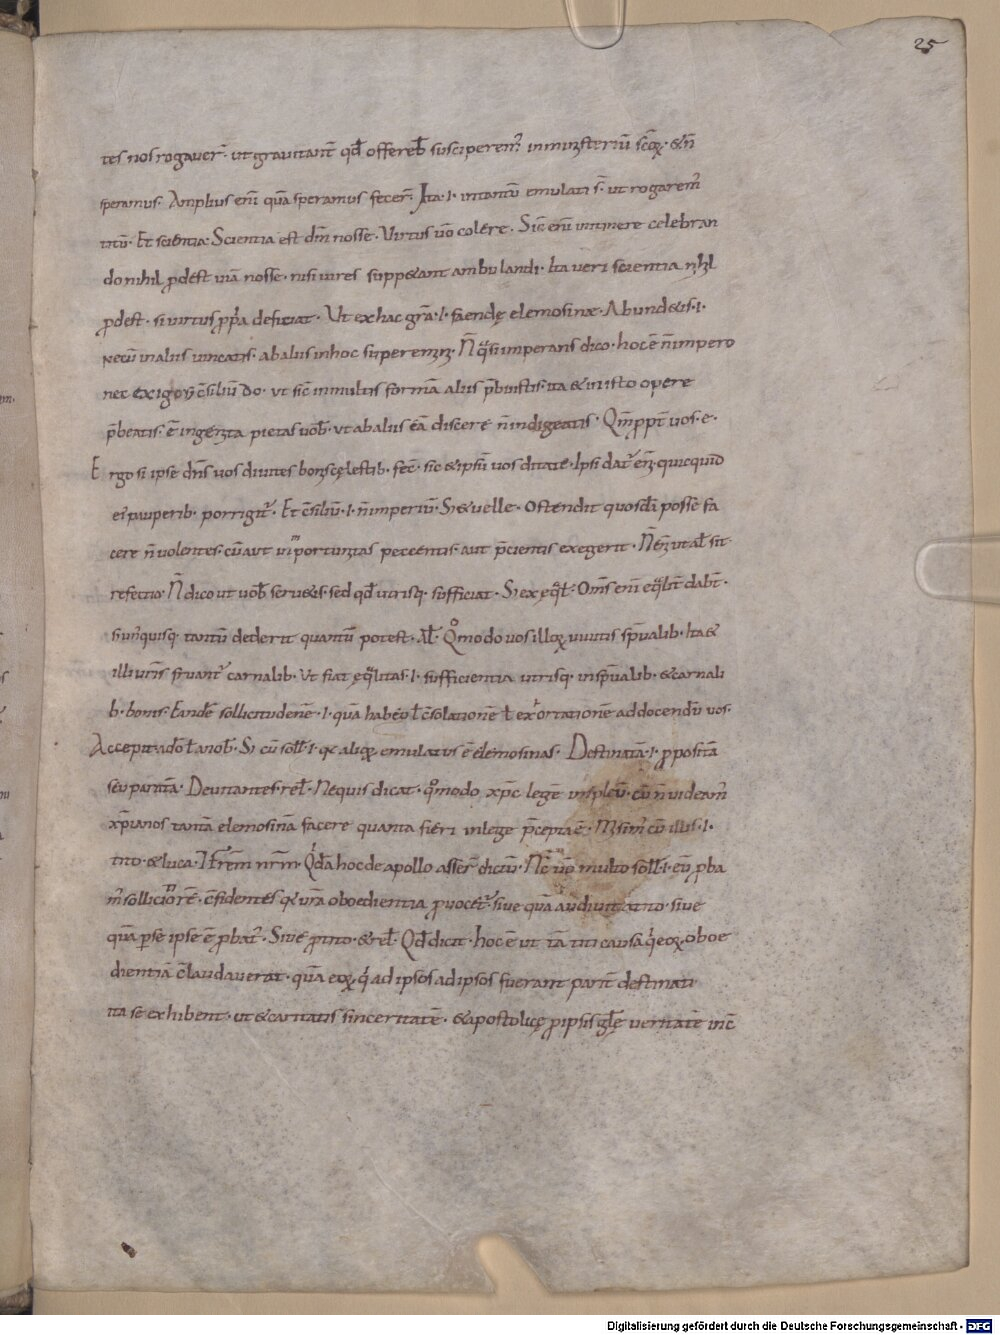 25
tes nos rogauer̄· ut gratuitant̄ qd̄ offereb̄ susciperem᷒ in ministeriū sc̄oꝝ· & n̄
speramus· Amplius eni quā speramus fecer̄· Ita ·i· intantū emulati s̄· ut rogarem᷒
titū· Et scientia· Scientia est dm̄ nosse· Virtus uō colere· Sic̄ eni in itinere celebran
do nihil ꝓdest uiā nosse· nisi uires suppe&ant ambulandi· Ita ueri scientia nihil
ꝓdest· si uirtus ꝓpͥa deficiat· Ut ex hac grā ·i· faciendę elemosinae· Abund&is ·i·
in aliis uincatis· ab aliis in hoc superemini· N̄ qͣsi imperans dico· hoc ē n̄ impero
nec exigo c̄siliū do· ut sic̄ in multis formā aliis p̄buistis· ita & in isto opere
p̄beatis· ē ingenita pietas uob̄· ut ab aliis eā discere n̄ indigeatis· Qm̄ ꝓpt̄ uos· e·
Ergo si ipse dn̄s uos diuites bonis cęlestib· fec̄· sic & ipsū uos ditate· Ipsi dat᷒ eni quicquid
ei pauperib· porrigit᷒· Et c̄siliū ·i· n̄ imperiū· Si & uelle· Ostendit quosdā posse fa
cere n̄ uolentes· cū aut inportunitas peccentis· aut p̄cientis exegerit· N̄ eni ut al̄ sit
refectio· N̄ dico ut uob̄ seruetis· sed qd̄ utrisq· sufficiat· Si ex ęq̄l· Oms̄ eni eq̄lit̄ dabt̄·
si un᷒quisq· tantū dederit quantū potest· Al̄· Qͦmodo uos illoꝝ uiuitis sp̄ualib· Ita &
illi uris̄ fruant᷒ carnalib· Ut fiat ęq̄litas ·i· sufficientia utrisq· in sp̄ualib· & carnali
b· bonis· Eandē sollicitudinē ·i· quā habeo t̄ c̄solationē t̄ exortationē ad docendū uos·
Si cū soll̄ ·i· qͥ alioꝝ emulatus ē elemosinas· Destinatā ·i· ꝓpositā
seu paratā· Deuitantes· rel̄· Ne quis dicat· qͦmodo xp̄c legē inpleuit cū n̄ uideam᷒
xp̄ianos tantā elemosinā facere quanta fieri in lege p̄cepta ē· Misim᷒ cū illis ·i·
tito· & luca· fr̄em nr̄m· Qͥdā hoc de apollo asser̄ dictū· Nc̄ uō multo soll̄ ·i· cū ꝓba
m᷒ solliciorē· c̄fidentes qͥ ur̄a oboedientia ꝓuocet᷒ siue quā audiuit a tito· siue
quā ꝑ se ipse ē ꝓbat᷒· Siue ꝓ tito· & rel̄· Qd̄ dicit· hoc ē ut tā titi causa qͥ eoꝝ oboe
dientiā c̄laudauerat· quā eoꝝ qͥ ad ipsos ad ipsos fuerant parit̄ destinati
ita se exhibent· ut & caritatis sinceritatē· & apostolicę ꝓ ipsis glę ueritatē inc̄
Digitalisierung gefördert durch die Deutsche Forschungsgemeinschaft - DFG